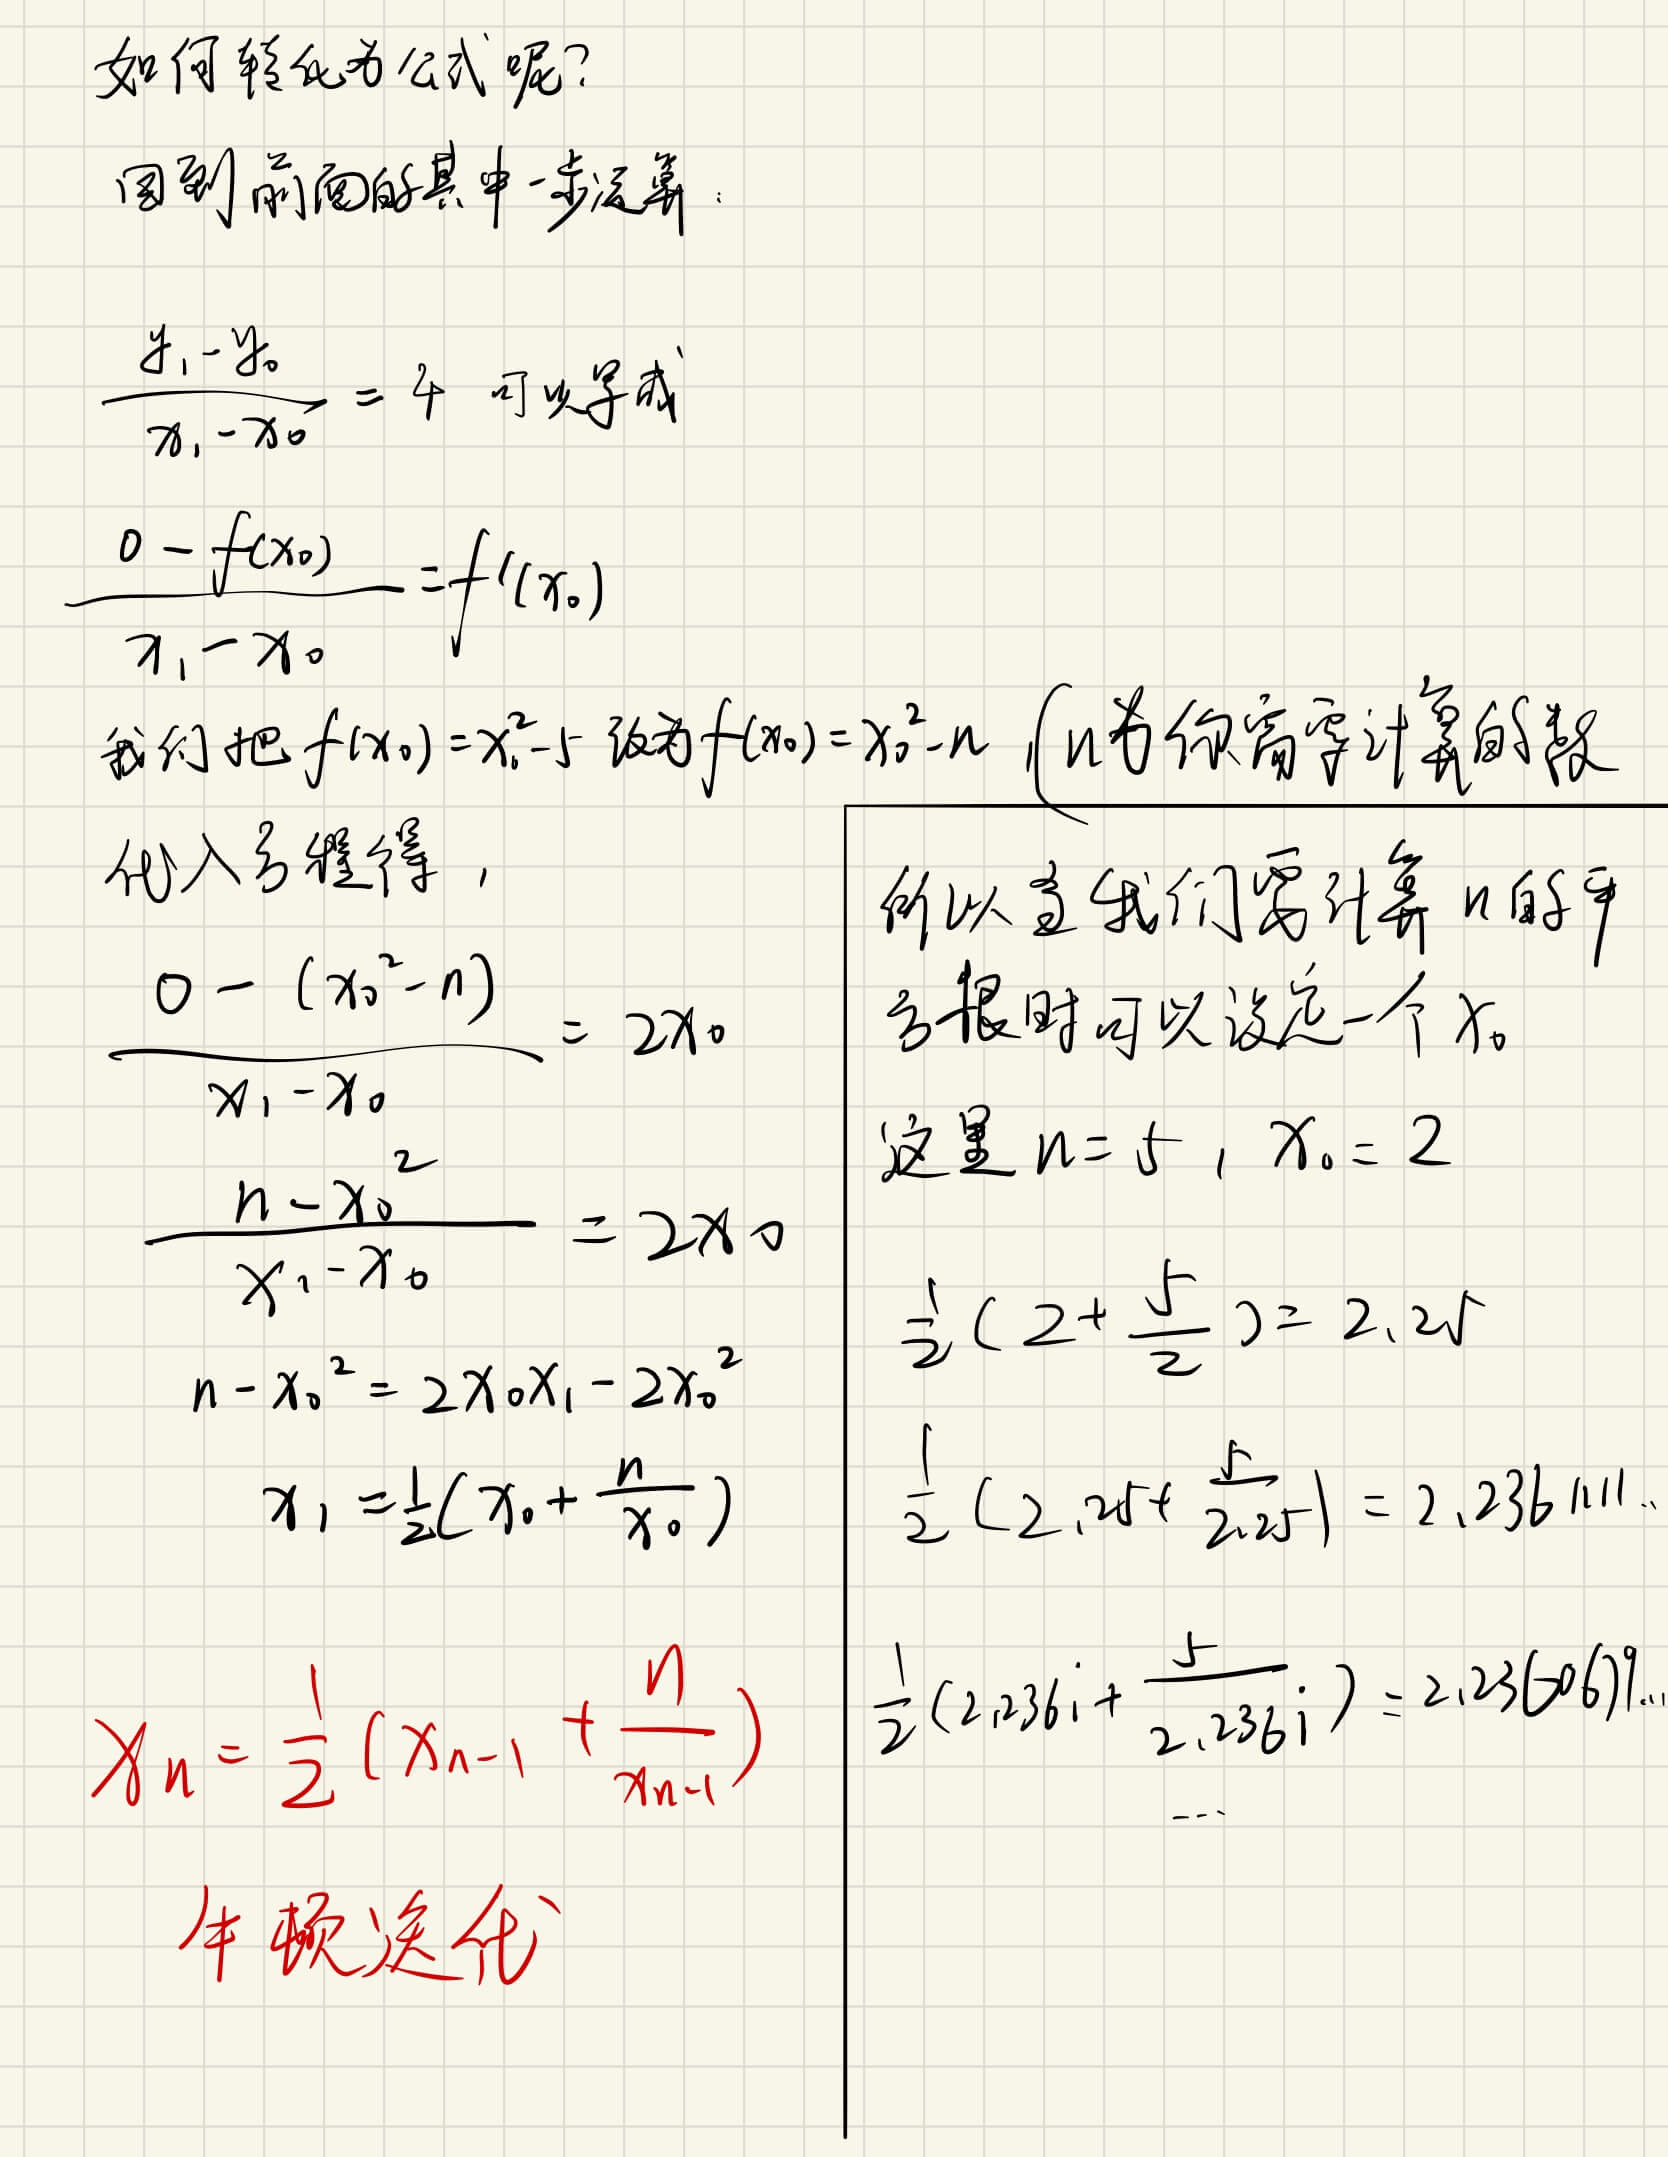 如何转化为公式呢?
回到前面的其中一步运算:
(y₁-y₀)/(x₁-x₀) = 4 可以写成
(0-f(x₀))/(x₁-x₀) = f'(x₀)
我们把 f(x₀)=x₀²-5 改为 f(x₀)=x₀²-n,(n为你需要计算的数
代入方程得,
(0-(x₀²-n))/(x₁-x₀) = 2x₀
(n-x₀²)/(x₁-x₀) = 2x₀
n-x₀² = 2x₀x₁-2x₀²
x₁ = 1/2(x₀+n/x₀)
xₙ = 1/2(xₙ₋₁+n/xₙ₋₁)
牛顿迭代
所以当我们要计算n的平
方根时可以设定一个x₀
这里n=5, x₀=2
1/2(2+5/2)=2.25
1/2(2.25+5/2.25)=2.2361111...
1/2(2.2361̇+5/2.2361̇)=2.2360679...
...